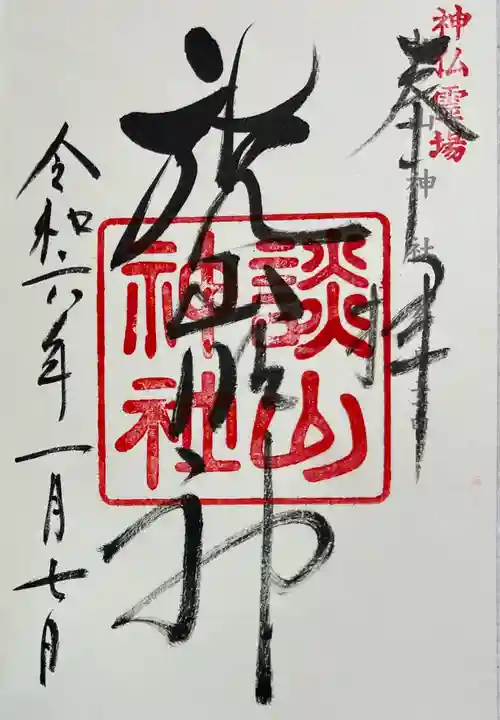 神仏霊場
奉拝
山神社
談山
神社
談山明神
令和六年一月七日